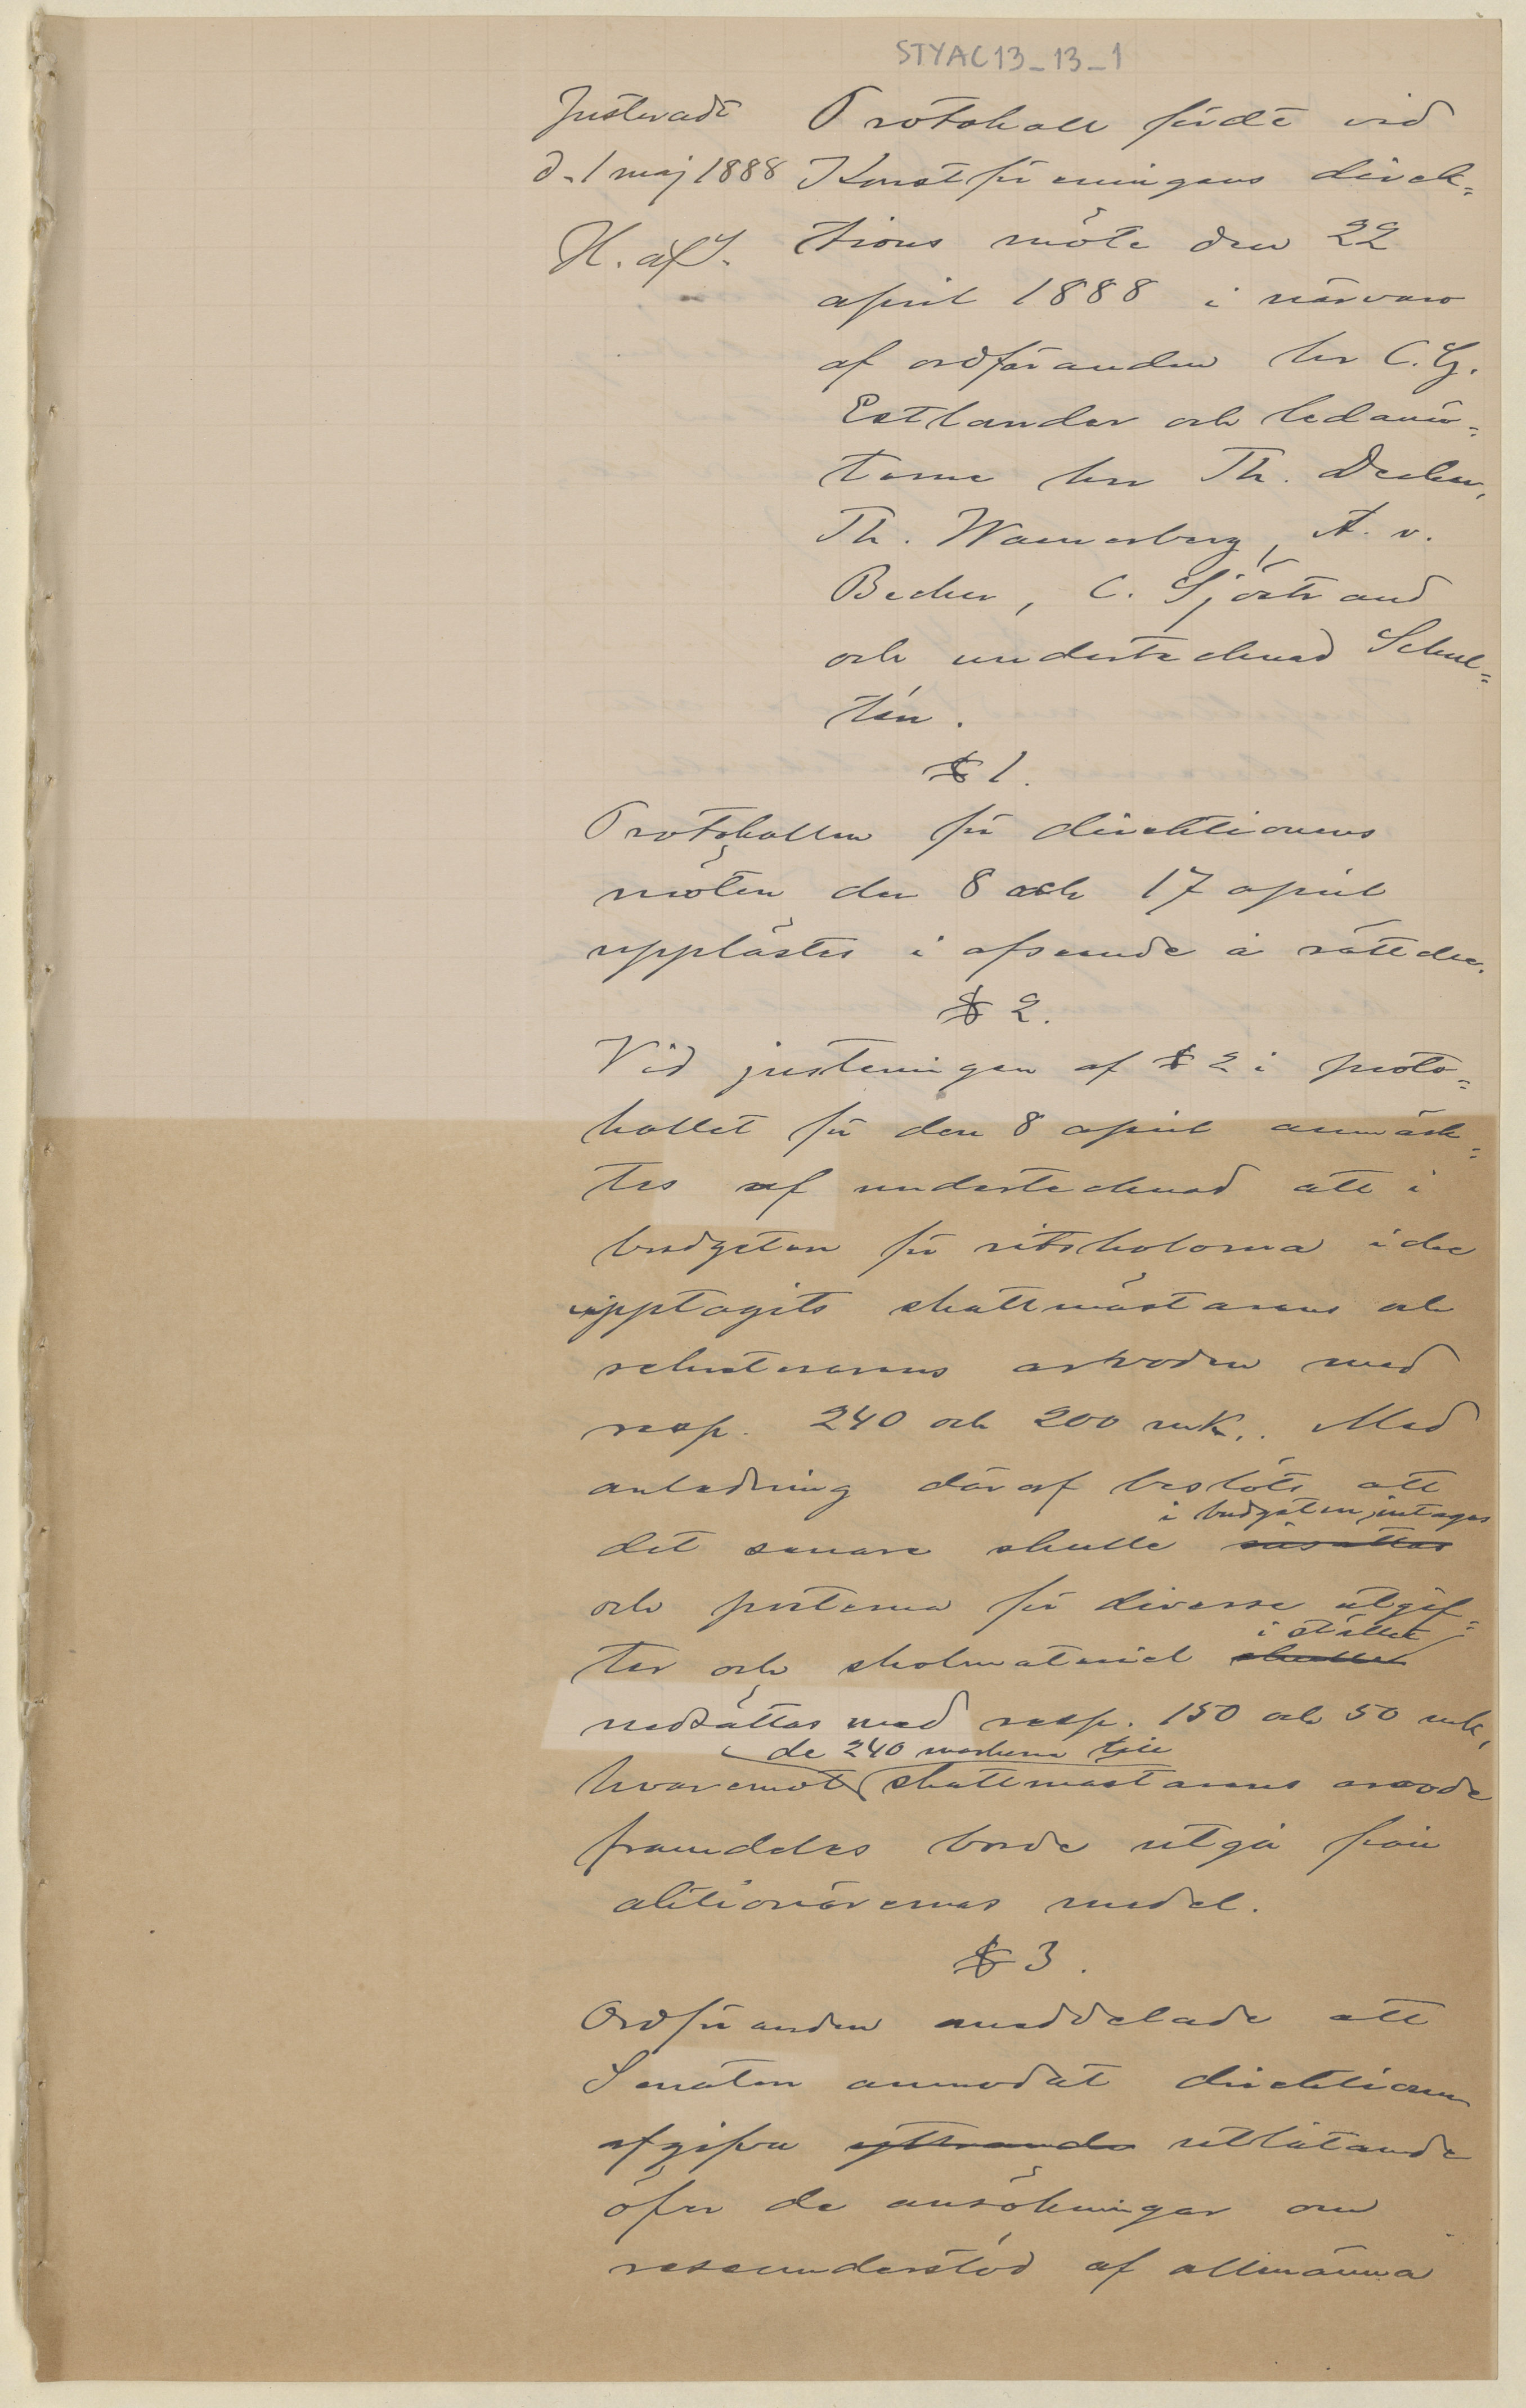 STYAC13_13_1
Justeradt
d. 1 maj 1888
H. af S.
Protokoll fördt vid
Konstföreningens direk=
tions möte den 22
april 1888 i närvaro
af ordföranden hr C. G.
Estlander och ledamö=
terne hrr Th. Decker,
Th. Waenerberg, A. v.
Becker, C. Sjöstrand
och undertecknad Schul=
tén.
§ 1.
Protokollen för direktionens
möten den 8 och 17 april
upplästes i afseende å rättelse.
§ 2.
Vid justeringen af § 2 i proto=
kollet för den 8 april anmärk=
tes af undertecknad att i
budgeten för ritskolorna icke
upptagits skattmästarens och
sekreterarens arvoden med
resp. 240 och 200 mk. Med
anledning däraf beslöts att
i budgeten intagas
det senare skulle
och posterna för diverse utgif=
i stället
ter och skolmateriel skulle
nedsättas med resp. 150 och 50 mk,
de 240 marken till
hvaremot skattmästarens arvode
framdeles borde utgå från
aktionärernas medel.
§ 3.
Ordföranden meddelade att
Senaten anmodat direktionen
afgifva yttrande utlåtande
öfver de ansökningar om
reseunderstöd af allmänna